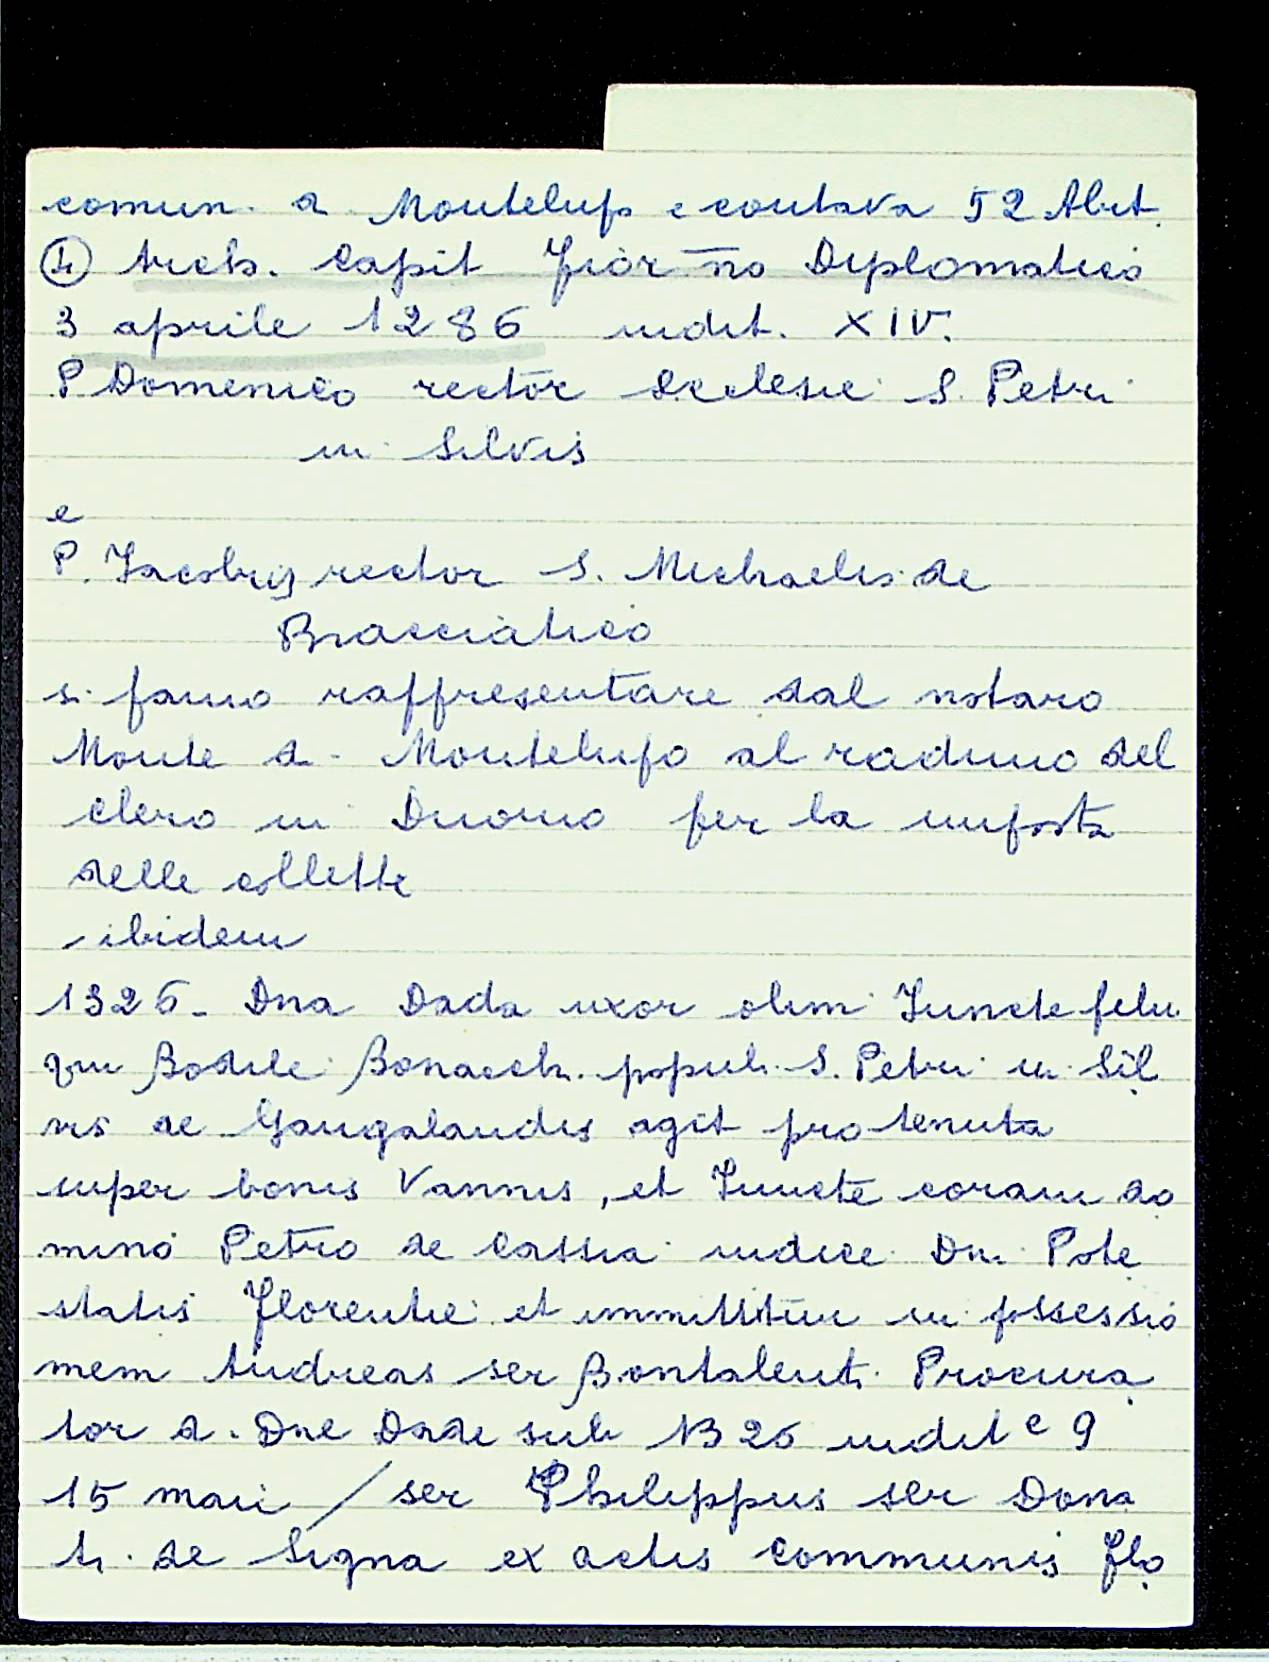 comun. a Montelupo e contava 52 Abit.
④ Arch. Capit Fior no Diplomatico
3 aprile 1286 indit. XIV.
P. Domenico rector Ecclesie S. Petri
in Silvis
e
P. Iacobus rector S. Michaelis de
Bracciatico
si fanno raffresentare dal notaro
Monte di Montelupo al raduno del
clero in Duomo per la imposta
delle collette
- ibidem
1326 - Dna Dada uxor olim Iuncte filii
qm Bodile Bonacch. populi S. Petri in Sil
vis de Gangalandis agit pro tenuta
super bonis Vannis, et Iuncte coram do
mino Petro de Cassia iudice Dni Pote
statis Florentie et immittitur in possessio
nem Andreas ser Bontalenti Procura
tor d. Dne Dade sub 1326 indit e 9
15 maii / ser Philippus ser Dona
ti de Signa ex actis communis Flo